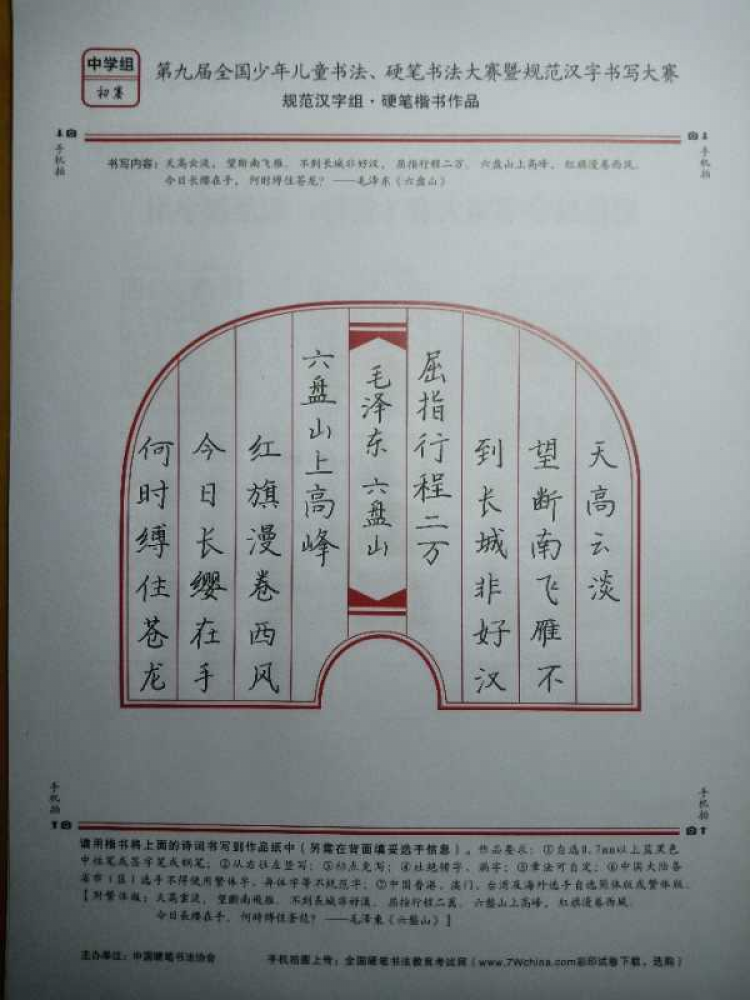 中学组
初赛
第九届全国少年儿童书法、硬笔书法大赛暨规范汉字书写大赛
规范汉字组·硬笔楷书作品
手机拍
手机拍
书写内容：天高云淡，望断南飞雁。不到长城非好汉，屈指行程二万。六盘山上高峰，红旗漫卷西风。
今日长缨在手，何时缚住苍龙？——毛泽东《六盘山》
天高云淡
望断南飞雁不
到长城非好汉
屈指行程二万
毛泽东 六盘山
六盘山上高峰
红旗漫卷西风
今日长缨在手
何时缚住苍龙
手机拍
手机拍
请用楷书将上面的诗词书写到作品纸中（另需在背面填妥选手信息）。作品要求：①自选0.7mm以上蓝黑色
中性笔或签字笔或钢笔；②从右往左竖写；③标点免写；④杜绝错字、漏字；⑤章法可自定；⑥中国大陆各
省市（区）选手不得使用繁体字、异体字等不规范字；⑦中国香港、澳门、台湾及海外选手自选简体版或繁体版。
【附繁体版：天高雲淡，望斷南飛雁。不到長城非好漢，屈指行程二萬。六盤山上高峰，紅旗漫卷西風。
今日長纓在手，何時縛住蒼龍？——毛澤東《六盤山》】
主办单位：中国硬笔书法协会
手机拍图上传：全国硬笔书法教育考试网（www.7Wchina.com彩印试卷下载、选购）